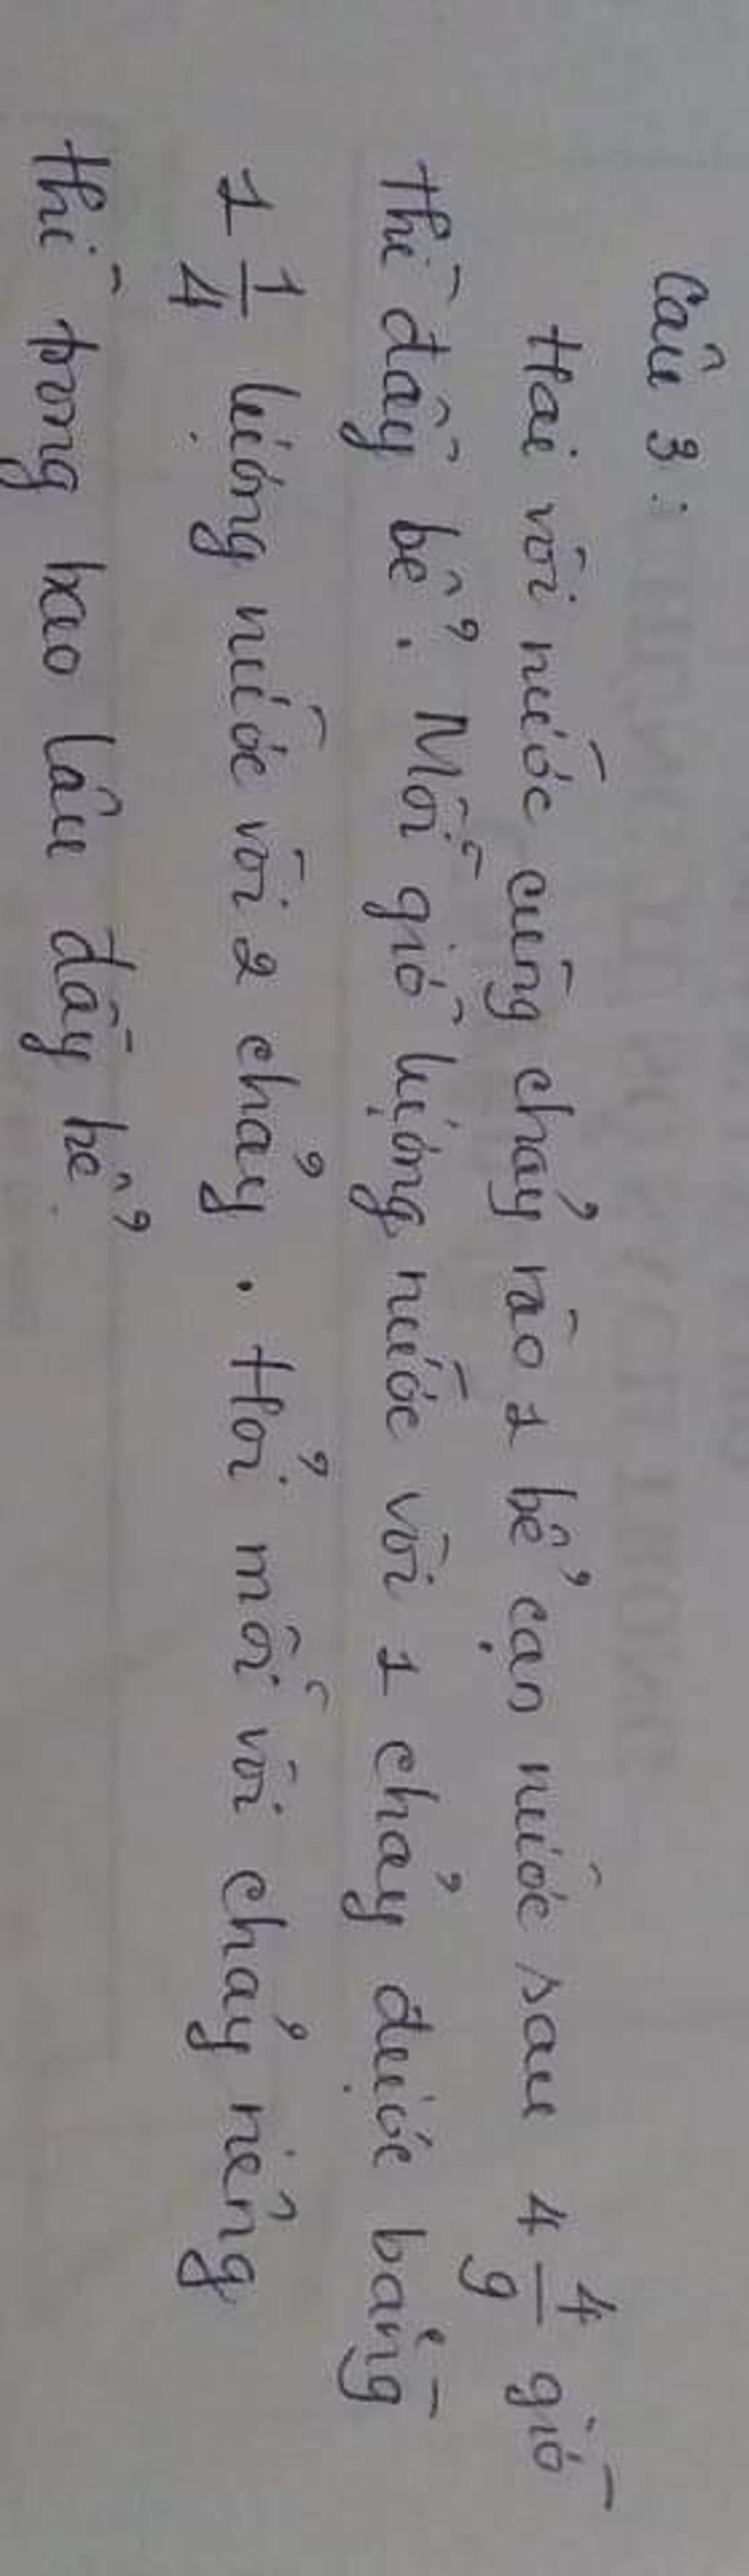 Câu 3 :
Hai vòi nước cùng chảy vào 1 bể cạn nước sau 4 4/9 giờ
thì đầy bể. Mỗi giờ lượng nước vòi 1 chảy được bằng
1 1/4 lượng nước vòi 2 chảy. Hỏi mỗi vòi chảy riêng
thì trong bao lâu đầy bể